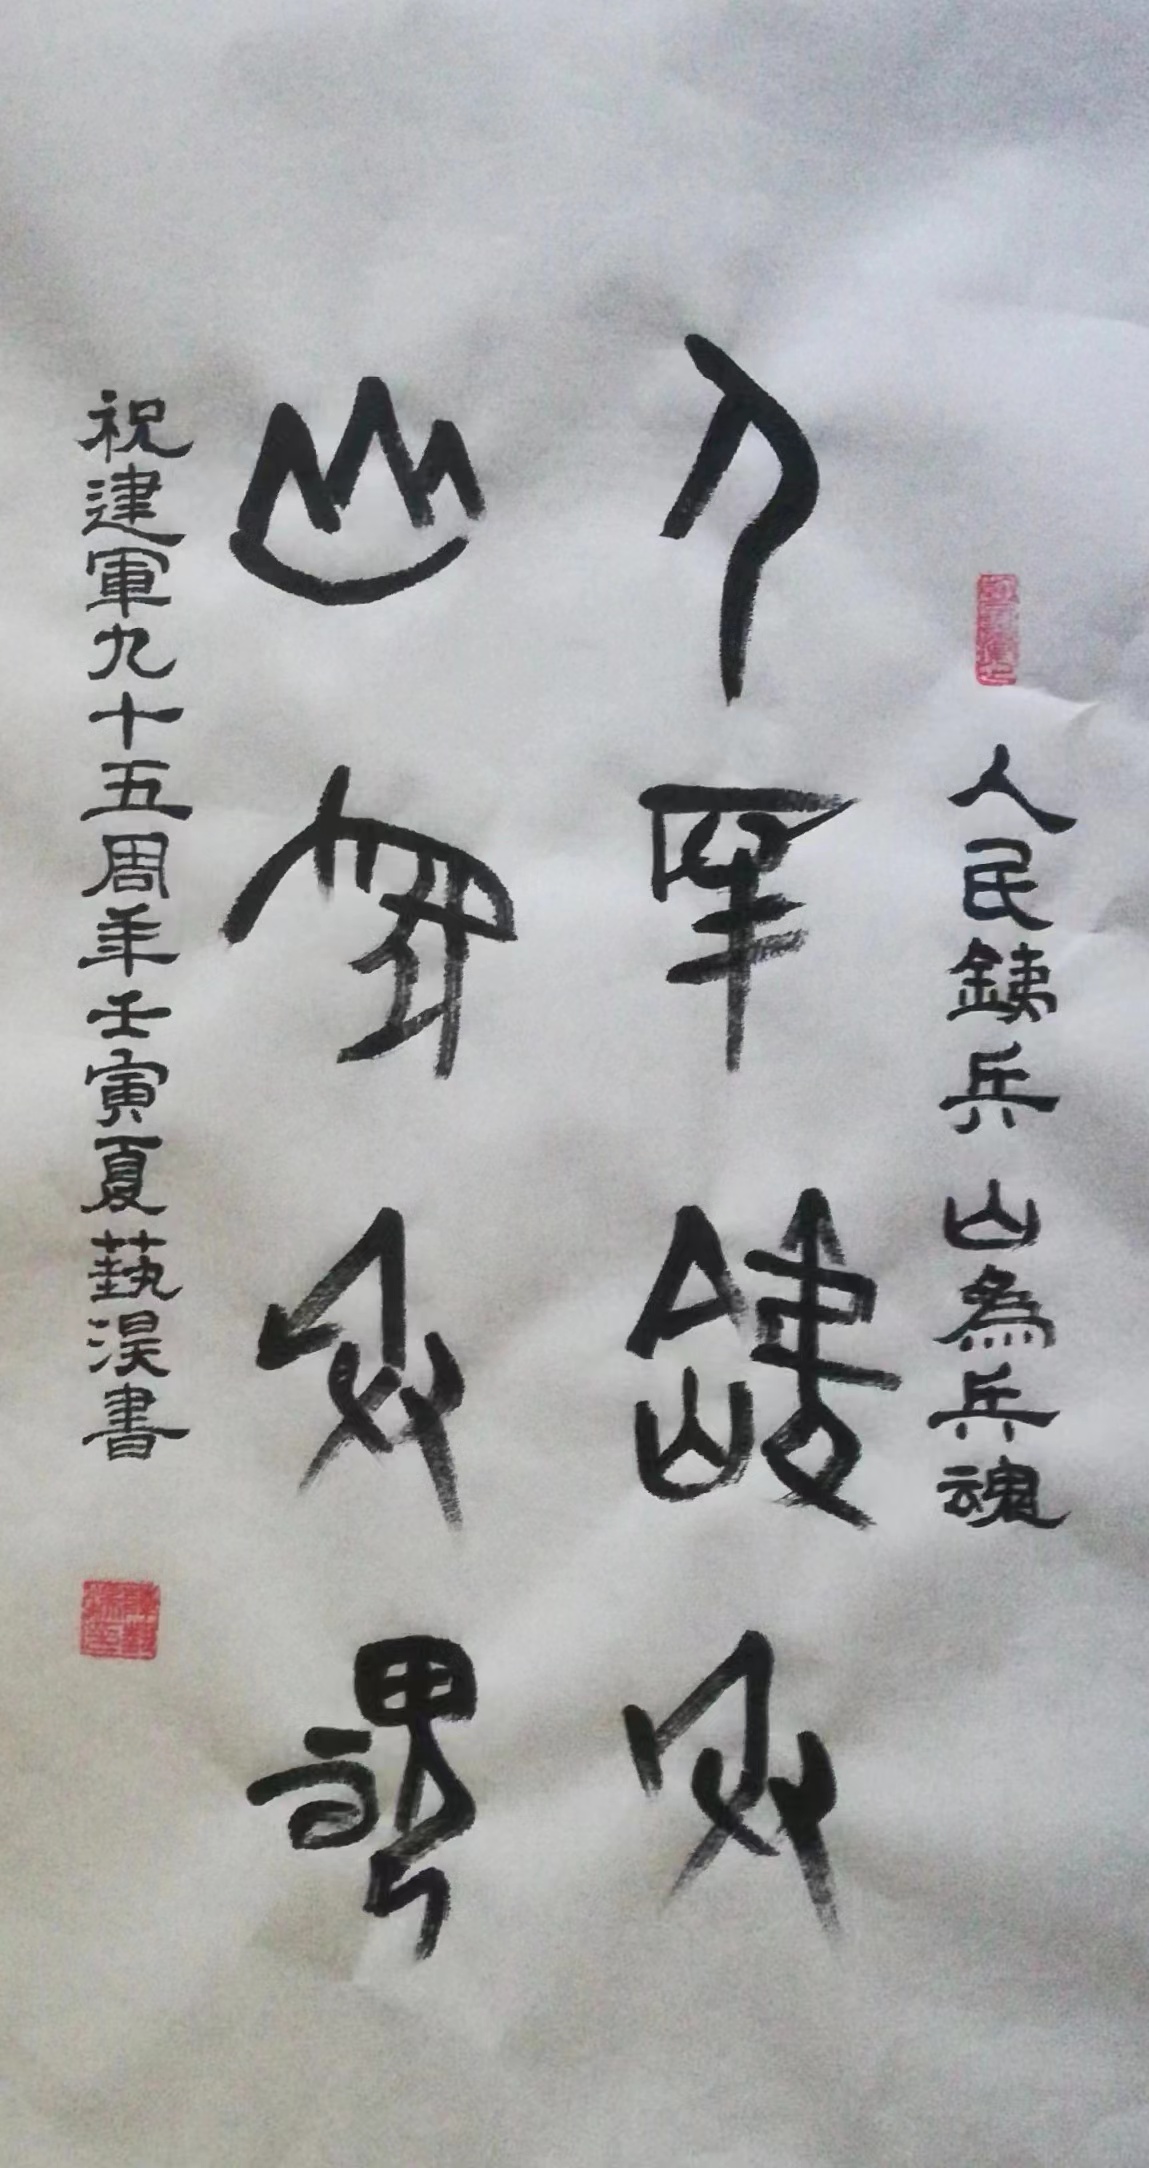 人民銕兵 山為兵魂
人民銕兵
山為兵魂
祝建軍九十五周年壬寅夏藝淏書